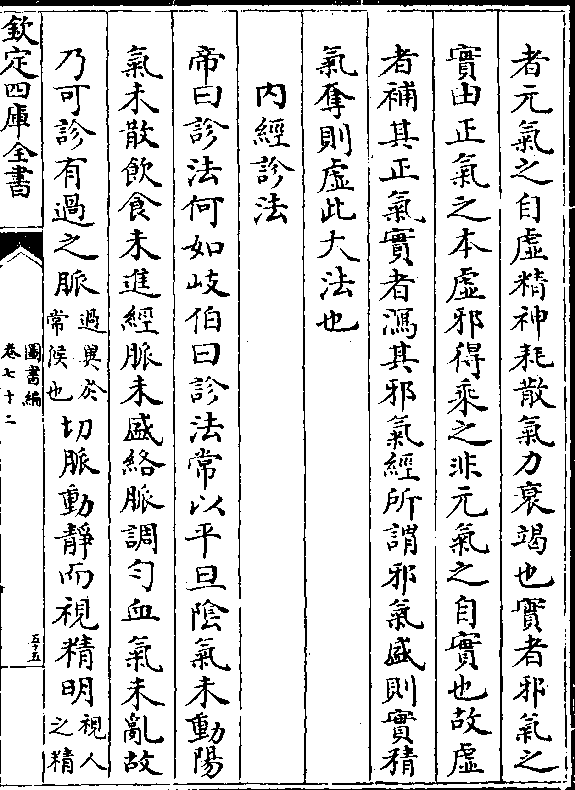 者元氣之自虛精神耗散氣力衰竭也實者邪氣之
實由正氣之本虛邪得乘之非元氣之自實也故虛
者補其正氣實者瀉其邪氣經所謂邪氣盛則實精
氣奪則虛此大法也
内經診法
帝曰診法何如岐伯曰診法常以平旦陰氣未動陽
氣未散飲食未進經脈未盛絡脈調勻血氣未亂故
乃可診有過之脈過異於常候也切脈動靜而視精明視人之精
欽定四庫全書
圖書編
卷七十二
五十五